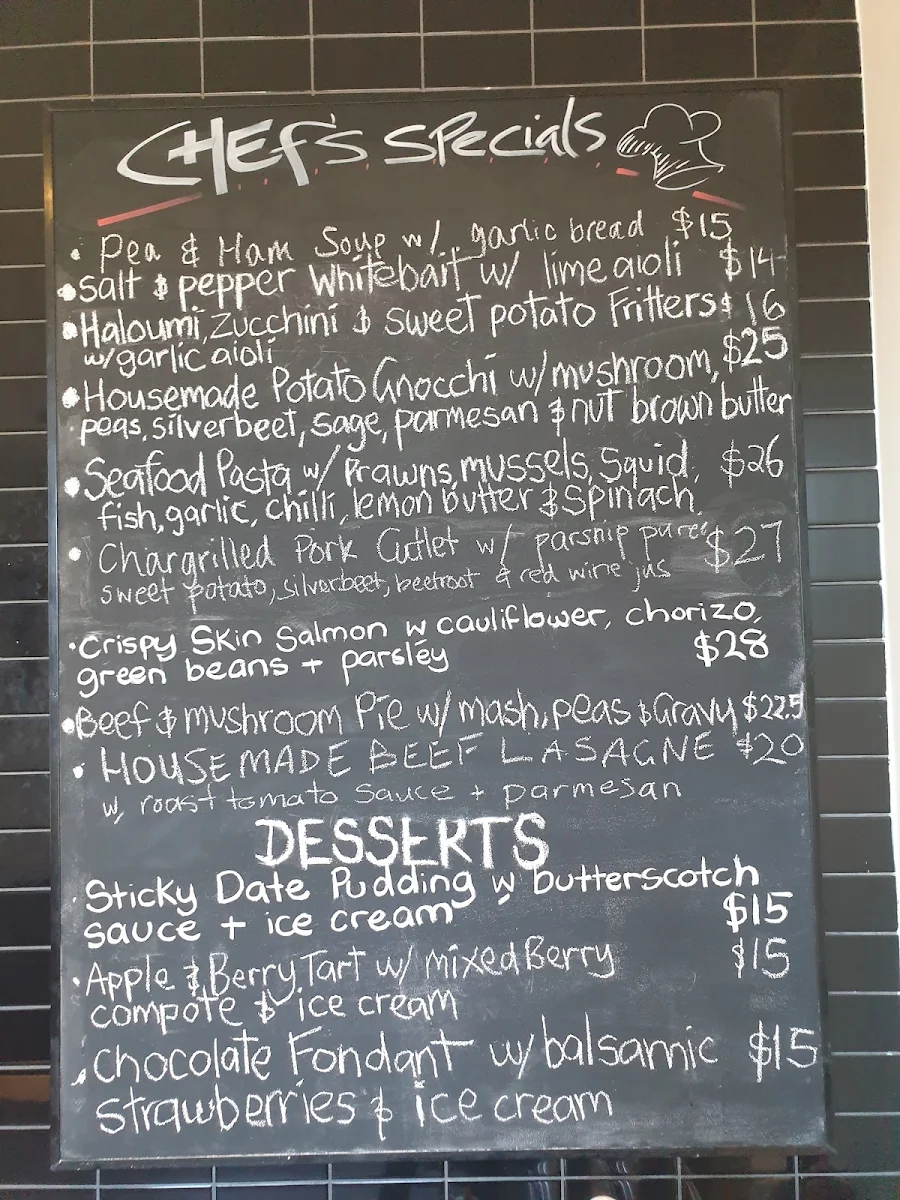 CHEF's specials
• Pea & Ham Soup w/ garlic bread $15
• Salt & pepper Whitebait w/ lime aioli $14
• Haloumi, Zucchini & sweet potato Fritters $16
w/garlic aioli
• Housemade Potato Gnocchi w/mushroom, $25
peas, silverbeet, sage, parmesan & nut brown butter
• Seafood Pasta w/ Prawns, mussels, Squid, $26
fish, garlic, chilli, lemon butter & Spinach
• Chargrilled Pork Cutlet w/ parsnip pureé $27
sweet potato, silverbeet, beetroot & red wine jus
• Crispy Skin Salmon w cauliflower, chorizo,
green beans + parsley $28
• Beef & mushroom Pie w/ mash, peas & Gravy $22.5
• HOUSEMADE BEEF LASAGNE $20
w, roast tomato sauce + parmesan
DESSERTS
• Sticky Date Pudding w butterscotch
sauce + ice cream $15
• Apple & Berry Tart w/ mixed Berry $15
compote & ice cream
• Chocolate Fondant w/balsamic $15
Strawberries & ice cream